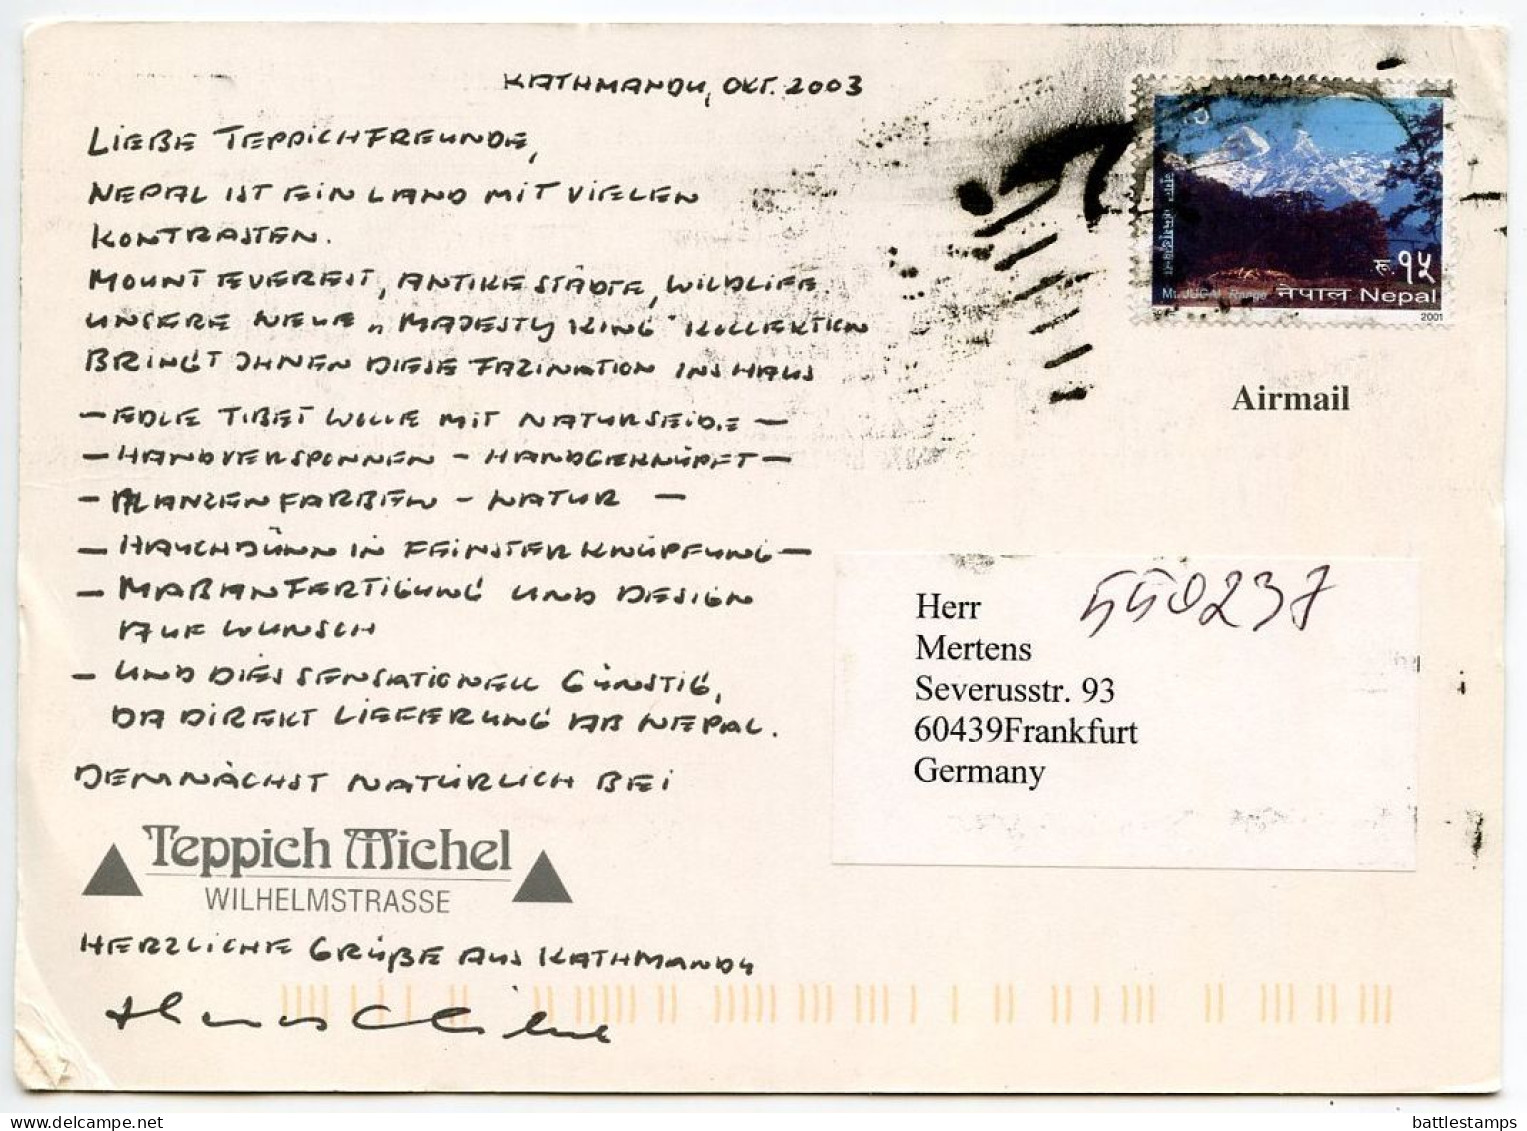 KATHMANDU, OKT. 2003
LIEBE TEPPICHFREUNDE,
NEPAL IST EIN LAND MIT VIELEN
KONTRASTEN.
MOUNT EVEREST, ANTIKE STÄDTE, WILDLIFE.
UNSERE NEUE „MAJESTY KING" KOLLEKTION
BRINGT IHNEN DIESE FAZINATION INS HAUS
– EDLE TIBET WOLLE MIT NATURSEIDE –
– HANDVERSPONNEN – HANDGEKNÜPFT –
– PFLANZENFARBEN – NATUR –
– HAUCHDÜNN IN FEINSTER KNÜPFUNG –
– MAßANFERTIGUNG UND DESIGN
AUF WUNSCH
– UND DIES SENSATIONELL GÜNSTIG,
DA DIREKT LIEFERUNG AB NEPAL.
DEMNÄCHST NATÜRLICH BEI
Teppich Michel
WILHELMSTRASSE
HERZLICHE GRÜßE AUS KATHMANDU
15
रू. १५
Mt. JUGAL Range नेपाल Nepal
2001
Airmail
550237
Herr
Mertens
Severusstr. 93
60439Frankfurt
Germany
battlestamps